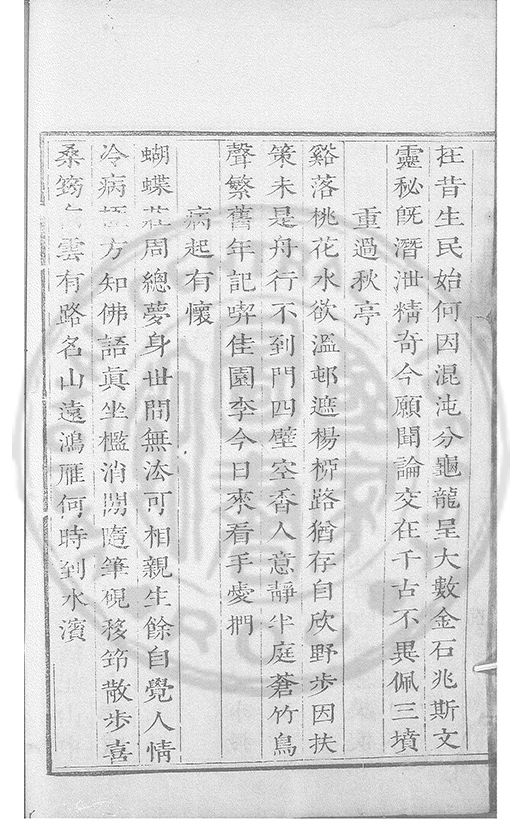 在昔生民始何因混沌分龜龍呈大數金石兆斯文
靈秘旣潛泄精奇今願聞論交在千古不異佩三墳
重過秋亭
谿落桃花水欲濫邨遮楊栁路猶存自欣野步因扶
策未是舟行不到門四壁空香人意靜半庭蒼竹鳥
聲繁舊年記喫佳園李今日來看手處捫
病起有懷
蝴蝶莊周總夢身世間無法可相親生餘自覺人情
冷病極方知佛語眞坐檻消閒隨筆硯移筇散步喜
桑筠白雲有路名山遠鴻雁何時到水濱